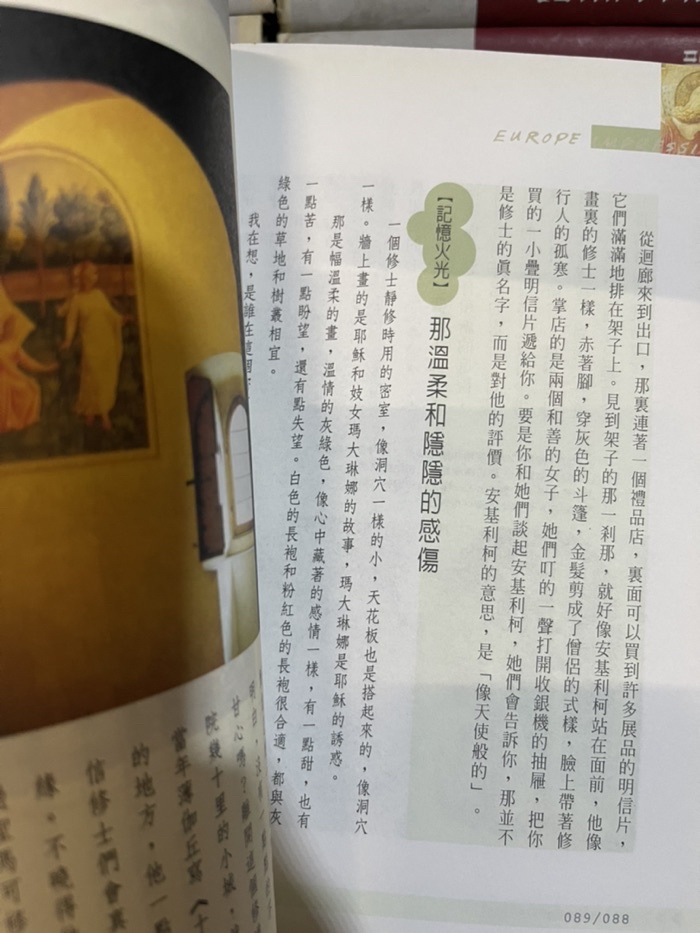 EUROPE
從迴廊來到出口，那裏連著一個禮品店，裏面可以買到許多展品的明信片，
它們滿滿地排在架子上。見到架子的那一剎那，就好像安基利柯站在面前，他像
畫裏的修士一樣，赤著腳，穿灰色的斗篷，金髮剪成了僧侶的式樣，臉上帶著修
行人的孤寒。掌店的是兩個和善的女子，她們叮的一聲打開收銀機的抽屜，把你
買的一小疊明信片遞給你。要是你和她們談起安基利柯，她們會告訴你，那並不
是修士的眞名字，而是對他的評價。安基利柯的意思，是「像天使般的」。
【記憶火光】
那溫柔和隱隱的感傷
一個修士靜修時用的密室，像洞穴一樣的小，天花板也是搭起來的，像洞穴
一樣。牆上畫的是耶穌和妓女瑪大琳娜的故事，瑪大琳娜是耶穌的誘惑。
那是幅溫柔的畫，溫情的灰綠色，像心中藏著的感情一樣，有一點甜，也有
一點苦，有一點盼望，還有點失望。白色的長袍和粉紅色的長袍很合適，都與灰
綠色的草地和樹叢相宜。
我在想，是誰在這個
甘心嗎？離開這個修
院幾十里的小城，
當年薄伽丘寫《十
的地方，他一點
信修士們會真
緣。不曉得
089/088